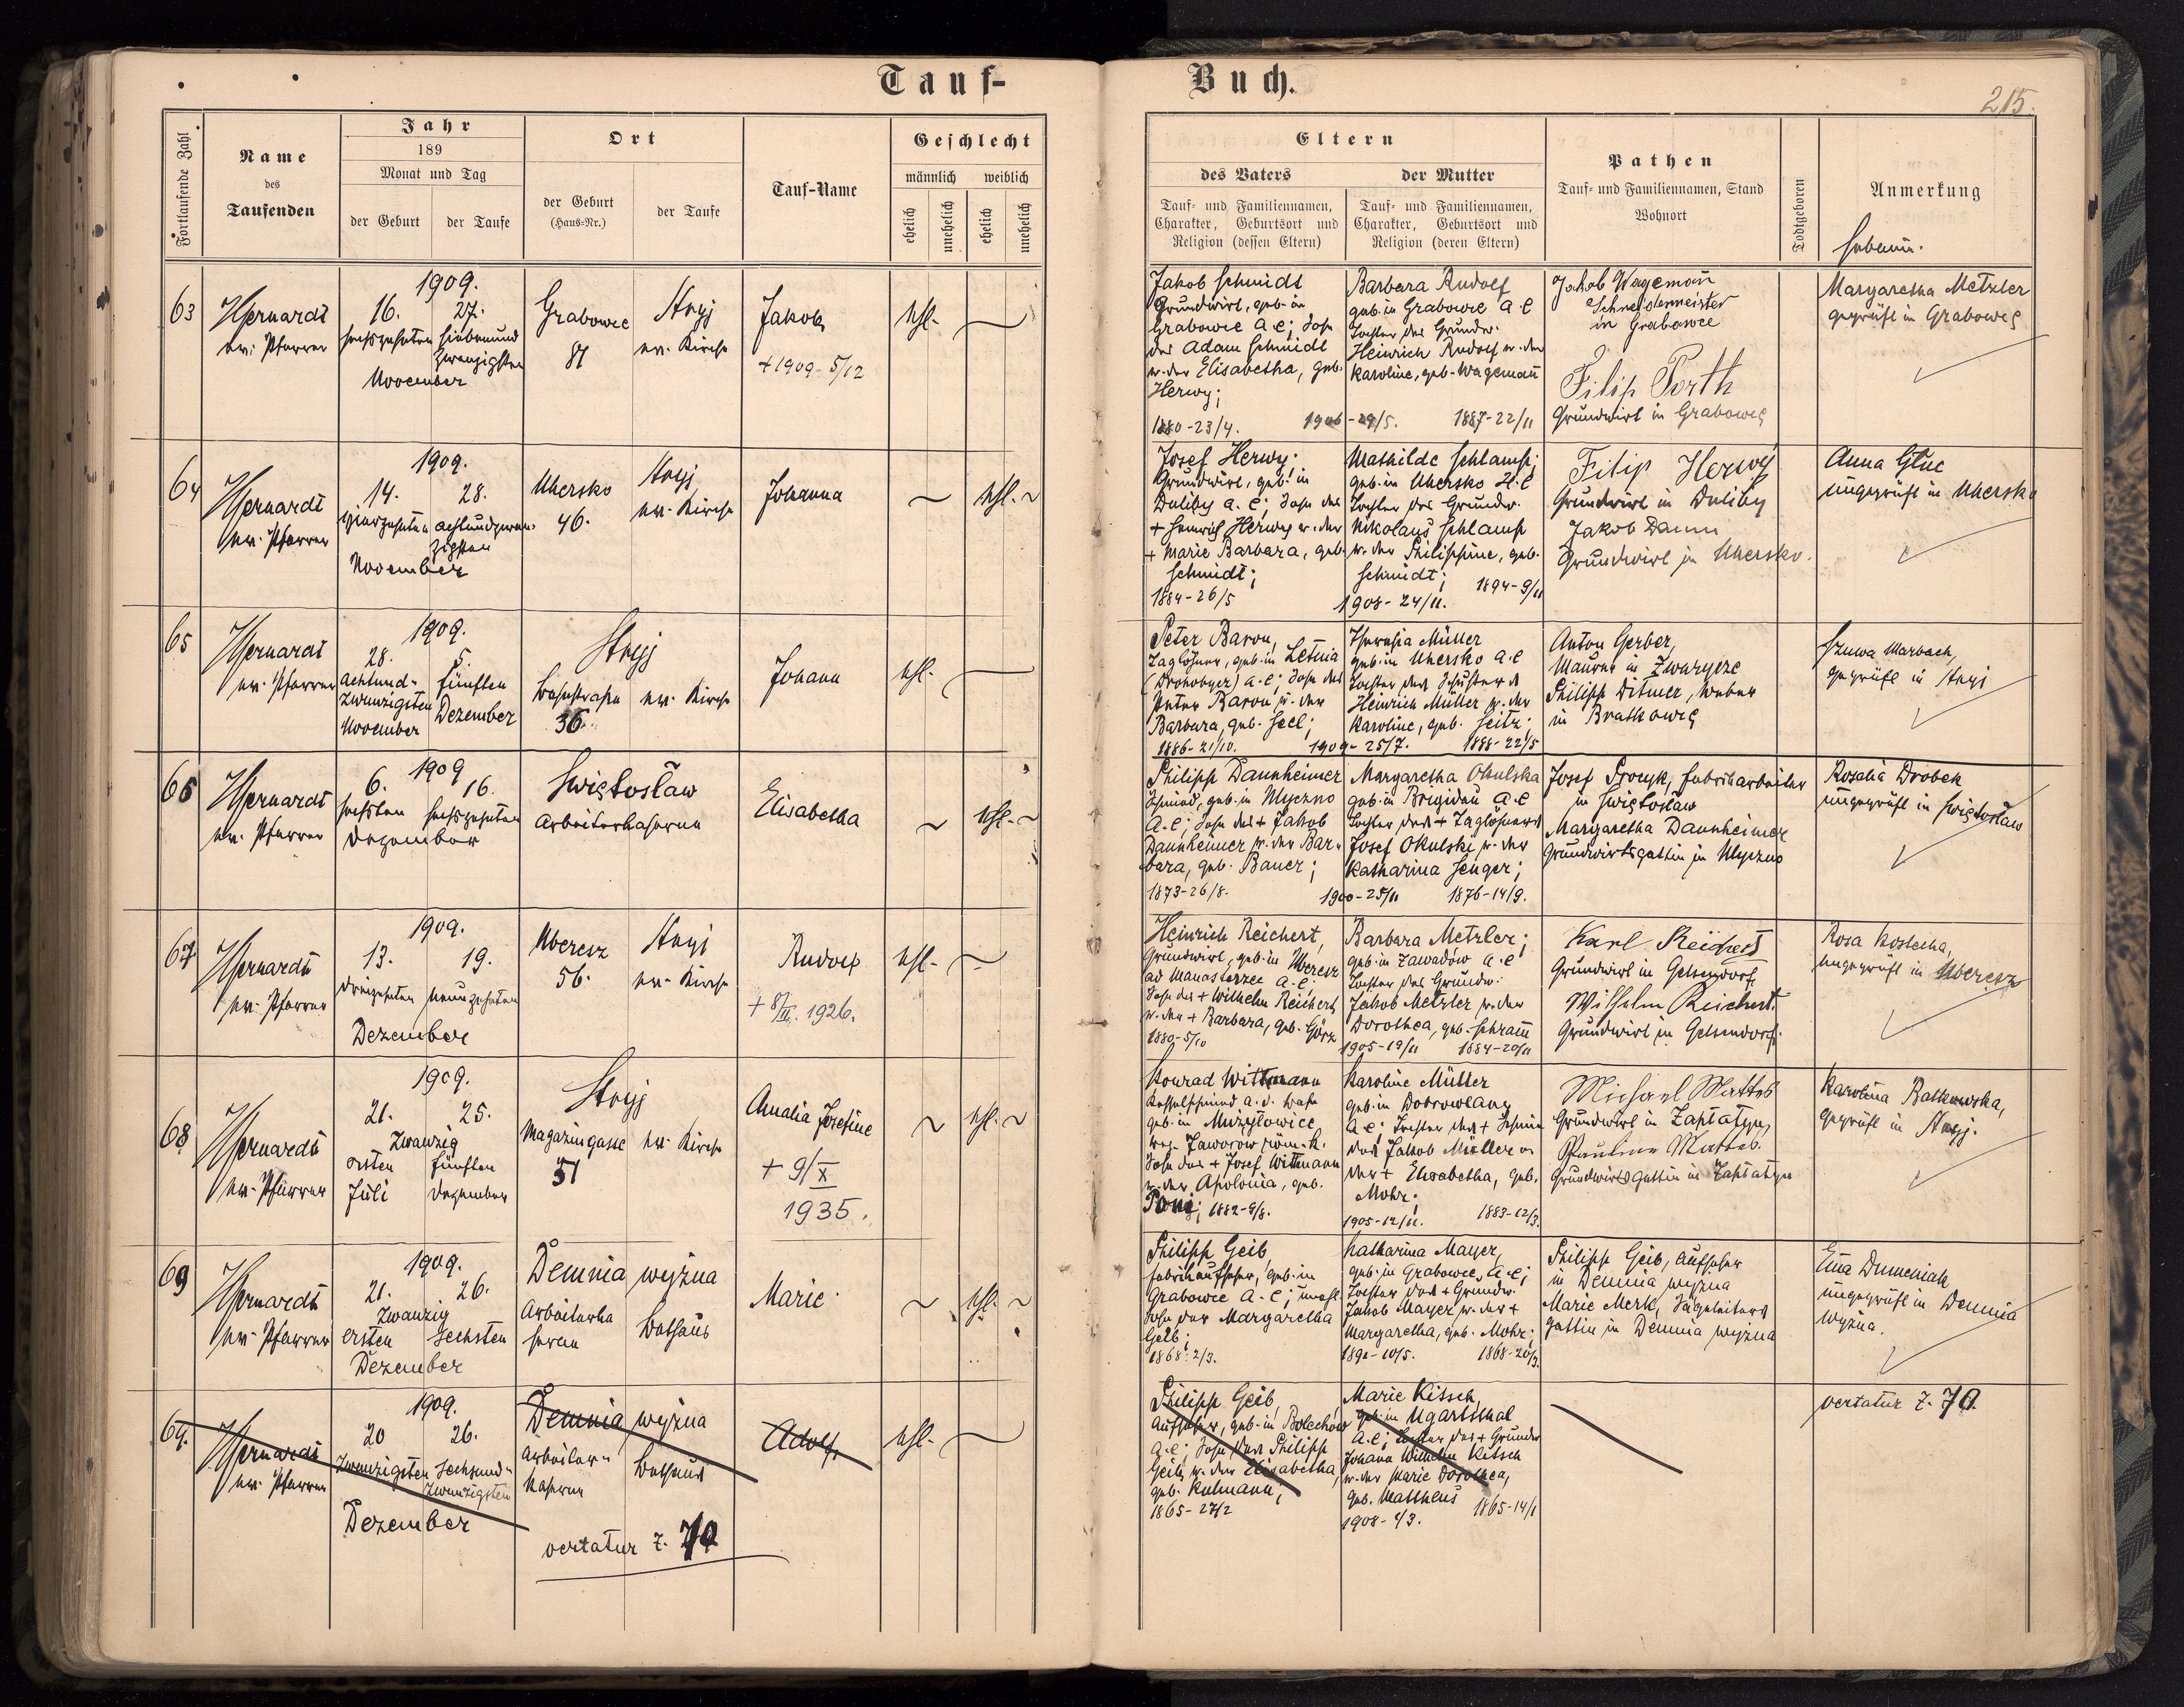 Tauf-
Buch.
215.
Fortlaufende Zahl
Name
des
Taufenden
Jahr
189
Monat und Tag
der Geburt
der Taufe
Ort
der Geburt
(Haus-Nr.)
der Taufe
Tauf-Name
Geschlecht
männlich
weiblich
ehelich
unehelich
ehelich
unehelich
Eltern
des Vaters
Tauf- und Familiennamen,
Charakter, Geburtsort und
Religion (dessen Eltern)
der Mutter
Tauf- und Familiennamen,
Charakter, Geburtsort und
Religion (deren Eltern)
Pathen
Tauf- und Familiennamen, Stand
Wohnort
Todtgeboren
Anmerkung
Hebamm.
63
ev. Pfarrer
1909.
16.
27.
sechszehnten
siebenund
zwanzigsten
November
Grabowce
81
Stryj
ev. Kirche
Jakob
+ 1909 - 5/12
ehl.
Jakob Schmidt
Grundwirt, geb. in
Grabowce a. C; Sohn
des Adam Schmidt
u. der Elisabetha, geb.
Herwy;
1880-23/4.
1906-29/5.
Barbara Rudolf
geb. in Grabowce a C
Tochter des Grundw.
Heinrich Rudolf u. der
Karoline, geb. Wagemañ
1887-22/11
Jakob Wagemañ
Schneidermeister
in Grabowce
Filip Porth
Grundwirt in Grabowce
Margaretha Metzler
geprüft in Grabowce
64
ev. Pfarrer
1909.
14.
28.
vierzehnten
achtundzwan-
zigsten
November
Uhersko
46.
Stryj
ev. Kirche
Johanna
ehl.
Josef Herwy;
Grundwirt, geb. in
Duliby a. C; Sohn des
+ Heinrich Herwy u. der
+ Marie Barbara, geb.
Schmidt;
1884-26/5
1908-24/11.
Mathilde Schlamp;
geb. in Uhersko H. C
Tochter des Grundw.
Nikolaus Schlamp
u. der Philippine, geb.
Schmidt;
1894-9/11
Filip Herwy
Grundwirt in Duliby
Jakob Daum
Grundwirt in Uhersko.
Anna Gluc
ungeprüft in Uhersko
65
ev. Pfarrer
1909.
28.
5.
achtund-
zwanzigsten
November
fünften
Dezember
Stryj
Bahnstraße
36.
ev. Kirche
Johann
ehl.
Peter Baron,
Taglöhner, geb. in Letnia
(Drohobycz) a. C; Sohn des
Peter Baron u. der
Barbara, geb. Heel;
1886-21/10.
1909-25/7.
Theresia Müller
geb. in Uhersko a. C
Tochter des Schusters
Heinrich Müller u. der
Karoline, geb. Seitz;
1888-22/5
Anton Gerber,
Maurer in Zwarycze
Philipp Ditmer, Weber
in Bratkowce
Marbach,
geprüft in Stryj
66
ev. Pfarrer
1909
6.
16.
sechsten
sechszehnten
Dezember
Swiętosław
Arbeiterkaserne
Elisabetha
ehl.
Philipp Dannheimer
Schmied, geb. in Ulyczno
A. C; Sohn des + Jakob
Dannheimer u. der Bar-
bara, geb. Bauer;
1873-26/8.
1900-25/11
Margaretha Okulska
geb. in Brigidau a. C
Tochter des + Taglöhners
Josef Okulski u. der
Katharina Senger;
1876-14/9.
Josef Procyk, Fabriksarbeiter
in Swiętosław
Margaretha Dannheimer
Grundwirtsgattin in Ulyczno
Rosalia Drobek
ungeprüft in Swiętosław
67
ev. Pfarrer
1909.
13.
19.
dreizehnten
neunzehnten
Dezember
Uberesz
56.
Stryj
ev. Kirche
Rudolf
+ 8/II. 1926.
ehl.
Heinrich Reichert,
Grundwirt, geb. in Uberesz
ad Manasterzec a. C;
Sohn des + Wilhelm Reichert
u. der + Barbara, geb. Görz
1880-5/10
1905-19/11
Barbara Metzler;
geb. in Zawadow a. C
Tochter des Grundw.
Jakob Metzler u. der
Dorothea, geb. Schram̄
1884-20/11
Karl Reichert
Grundwirt in Gelsendorf
Wilhelm Reichert.
Grundwirt in Gelsendorf.
Rosa Kostecka,
ungeprüft in Uberesz
68
ev. Pfarrer
1909.
21.
25.
Zwanzig
ersten
fünften
Juli
Dezember
Stryj
Magazingasse
51
ev. Kirche
Amalia Josefine
+ 9/X
1935.
ehl.
Konrad Wittmann
Kesselschmied a. d. Bahn
geb. in Mużyłowice
Jaworow röm. k.
Sohn des + Josef Wittmann
u. der Apolonia, geb.
1882-9/8.
1905-12/11.
Karoline Müller
geb. in Dobrowlany
A. C; Tochter des + Schmie
des Jakob Müller u.
der + Elisabetha, geb.
Mohr;
1883-12/3.
Michael Mattes
Grundwirt in Zaplatyn
Pauline Mattes.
Grundwirts Gattin in Zaplatyn
Karolina Balkowska,
geprüft in Stryj.
69
ev. Pfarrer
1909.
21.
26.
Zwanzig
ersten
sechsten
Dezember
Demnia wyżna
Arbeiterka
serne
Bethaus
Marie
ehl.
Philipp Geib,
Fabrikaufseher, geb. in
Grabowce A. C; unehl.
Sohn der Margaretha
Geib;
1868-2/3.
189-10/5.
Katharina Mayer,
geb. in Grabowce, a. C;
Tochter des + Grundw.
Jakob Mayer u. der +
Margaretha, geb. Mohr;
1868-20/3.
Philipp Geib, Aufseher
in Demnia wyżna
Marie Merk, Sägeleiters
gattin in Demnia wyżna
Ema Dumeniak
ungeprüft in Demnia
wyżna.
69.
ev. Pfarrer
1909.
20
26.
Zwanzigsten
Sechsund-
zwanzigsten
Dezember
Demnia wyżna
Arbeiter-
kaserne
Bethaus
vertatur Z. 70
Adolf
ehl.
Philipp Geib,
Aufseher, geb. in Bolechow
a. C; Sohn des Philipp
Geib u. der Elisabetha,
geb. Kulmann;
1865-27/2
1908-1/3.
Marie Kitsch,
geb. in Ugartsthal
A. C; Tochter des + Grundw
Johann Wilhelm Kitsch
u. der Marie Dorothea,
geb. Mattheus
1865-14/1
vertatur Z. 70